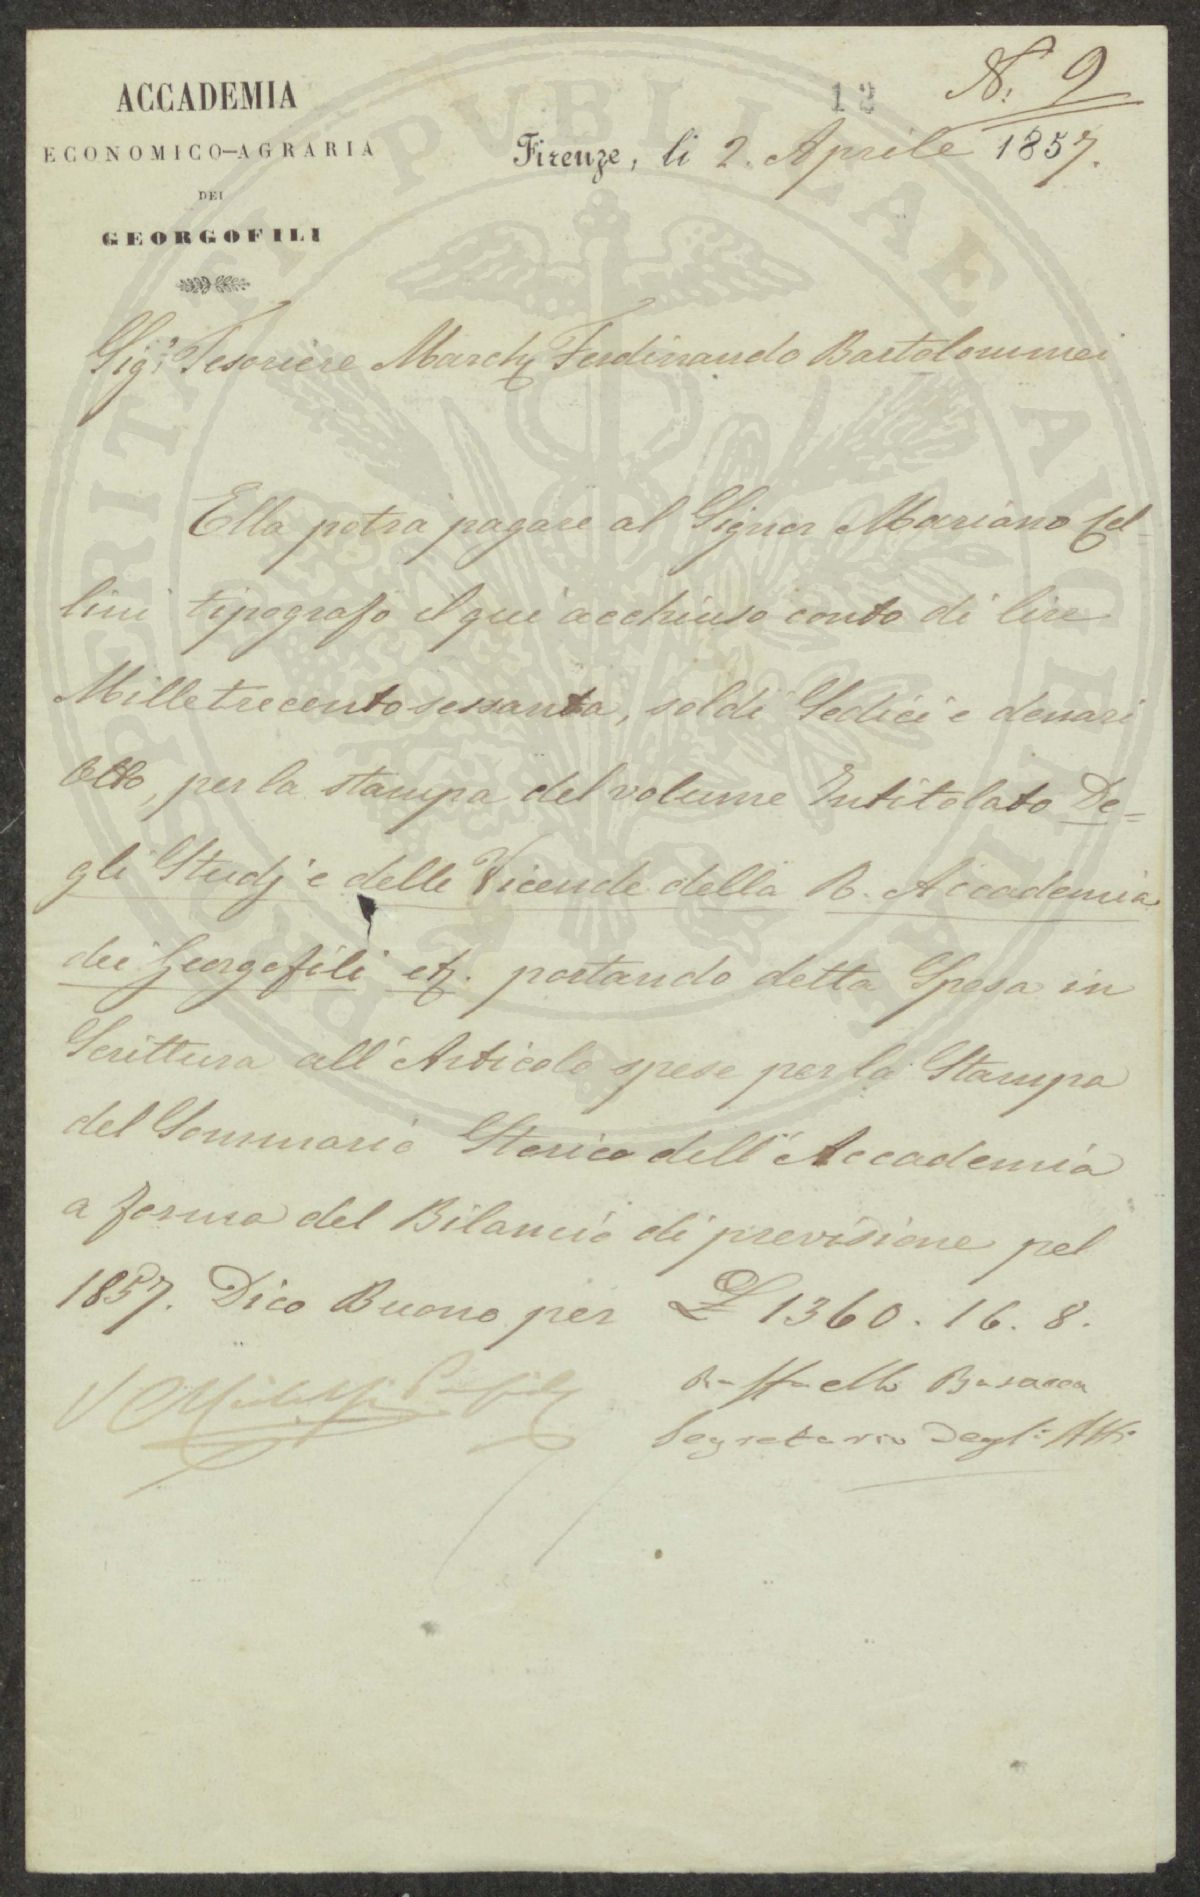 ACCADEMIA
ECONOMICO-AGRARIA
DEI
GEORGOFILI
12
N. 9
Firenze, li 2. Aprile 1857.
Sigr. Tesoriere March. Ferdinando Bartolommei
Ella potrà pagare al Signor Mariano Cel=
lini tipografo il qui acchiuso conto di lire
Milletrecentosessanta, soldi Sedici e denari
Otto, per la stampa del volume Intitolato De=
gli Studj e delle Vicende della R. Accademia
dei Georgofili etc. portando detta Spesa in
Scrittura all'Articolo spese per la Stampa
del Sommario Storico dell'Accademia
a forma del Bilancio di previsione pel
1857. Dico Buono per £ 1360. 16. 8.
V
Raffaello Busacca
Segretario degli Atti
PROSPERITATI PUBLICAE AUGENDAE